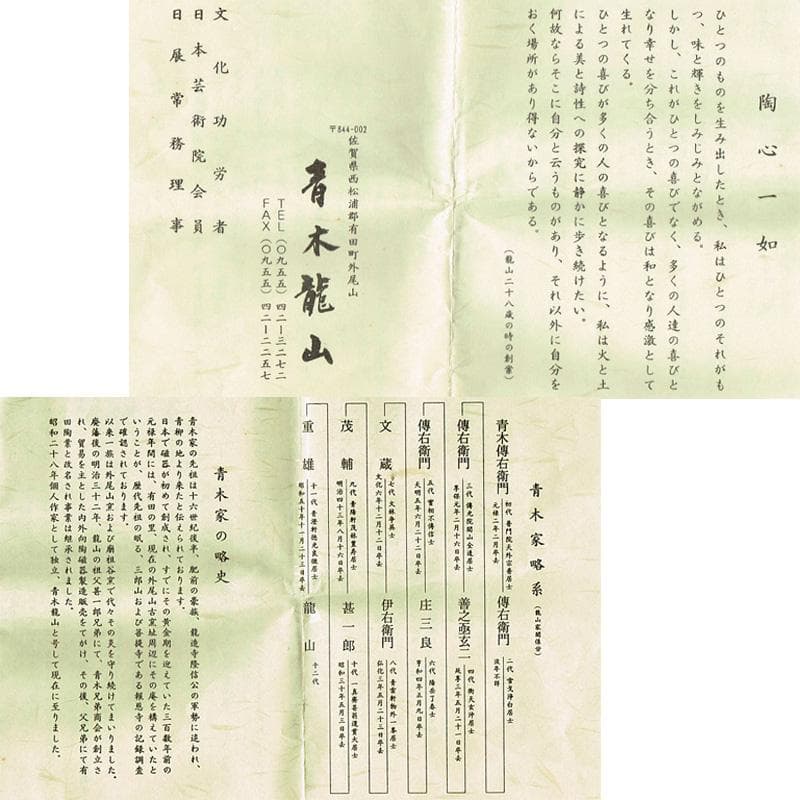 陶心一如
ひとつのものを生み出したとき、私はひとつのそれがも
つ、味と輝きをしみじみとながめる。
しかし、これがひとつの喜びでなく、多くの人達の喜びと
なり幸せを分ち合うとき、その喜びは和となり感激として
生れてくる。
ひとつの喜びが多くの人の喜びとなるように、私は火と土
による美と詩性への探究に静かに歩き続けたい。
何故ならそこに自分と云うものがあり、それ以外に自分を
おく場所があり得ないからである。
(龍山二十八歳の時の創業)
〒844-002
佐賀県西松浦郡有田町外尾山
青木龍山
TEL(〇九五五)四二ー三二七二
FAX(〇九五五)四二ー二二五七
文化功労者
日本芸術院会員
日展常務理事
青木家略系(龍山家関係分)
青木傳右衛門
初代 普門院天外宗善居士
元禄二年二月卒去
傳右衛門
二代 雪戈浄白居士
没年不詳
傳右衛門
三代 傳光院関山全達居士
享保元年二月十六日卒去
善之亟玄二
四代 衡天玄沖居士
延享三年五月二十一日卒去
傳右衛門
五代 實相不傳信士
天明五年六月二十二日卒去
庄三良
六代 陽岳了春士
享和四年五月九日卒去
文蔵
七代 大林浄苑士
文化六年十二月十二日卒去
伊右衛門
八代 青雲軒物外一峯居士
弘化三年五月二十三日卒去
茂輔
九代 青陽軒茂林豊寿居士
明治四十三年八月十六日卒去
甚一郎
十代 一真齊甚翁道貫大居士
昭和三十年五月三日卒去
重雄
十一代 青澄軒徳光良雄居士
昭和五十年十一月二十三日卒去
龍山
十二代
青木家の略史
青木家の先祖は十六世紀後半、肥前の豪族、龍造寺隆信公の軍勢に追われ、
青柳の地より来たと伝えられております。
日本で磁器が初めて創成され、すでにその黄金期を迎えていた三百数年前の
元禄年間には、有田の里、現在の外尾山古窯址周辺にその庵を構えていたと
いうことが、歴代先祖の眠る、三郎山および菩提寺である報恩寺の記録調査
で確認されております。
以来一族は外尾山窯および廟祖谷窯で代々その炎を守り続けてまいりました。
廃藩後の明治三十二年、龍山の祖父甚一郎兄弟にて、青木兄弟商会が創立さ
れ、貿易を主とした内外向陶磁器製造販売をてがけ、その後、父兄弟にて有
田陶業と改名され事業は継承されました。
昭和二十八年個人作家として独立、青木龍山と号して現在に至りました。